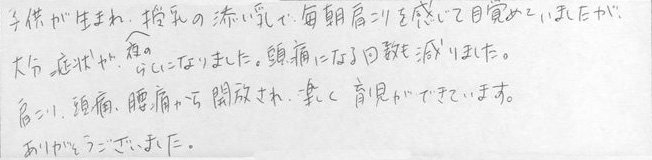 子供が生まれ、授乳の添い乳で、毎朝肩こりを感じて目覚めていましたが、
大分症状が、夜のらくになりました。頭痛になる回数も減りました。
肩こり、頭痛、腰痛から開放され、楽しく育児ができています。
ありがとうございました。